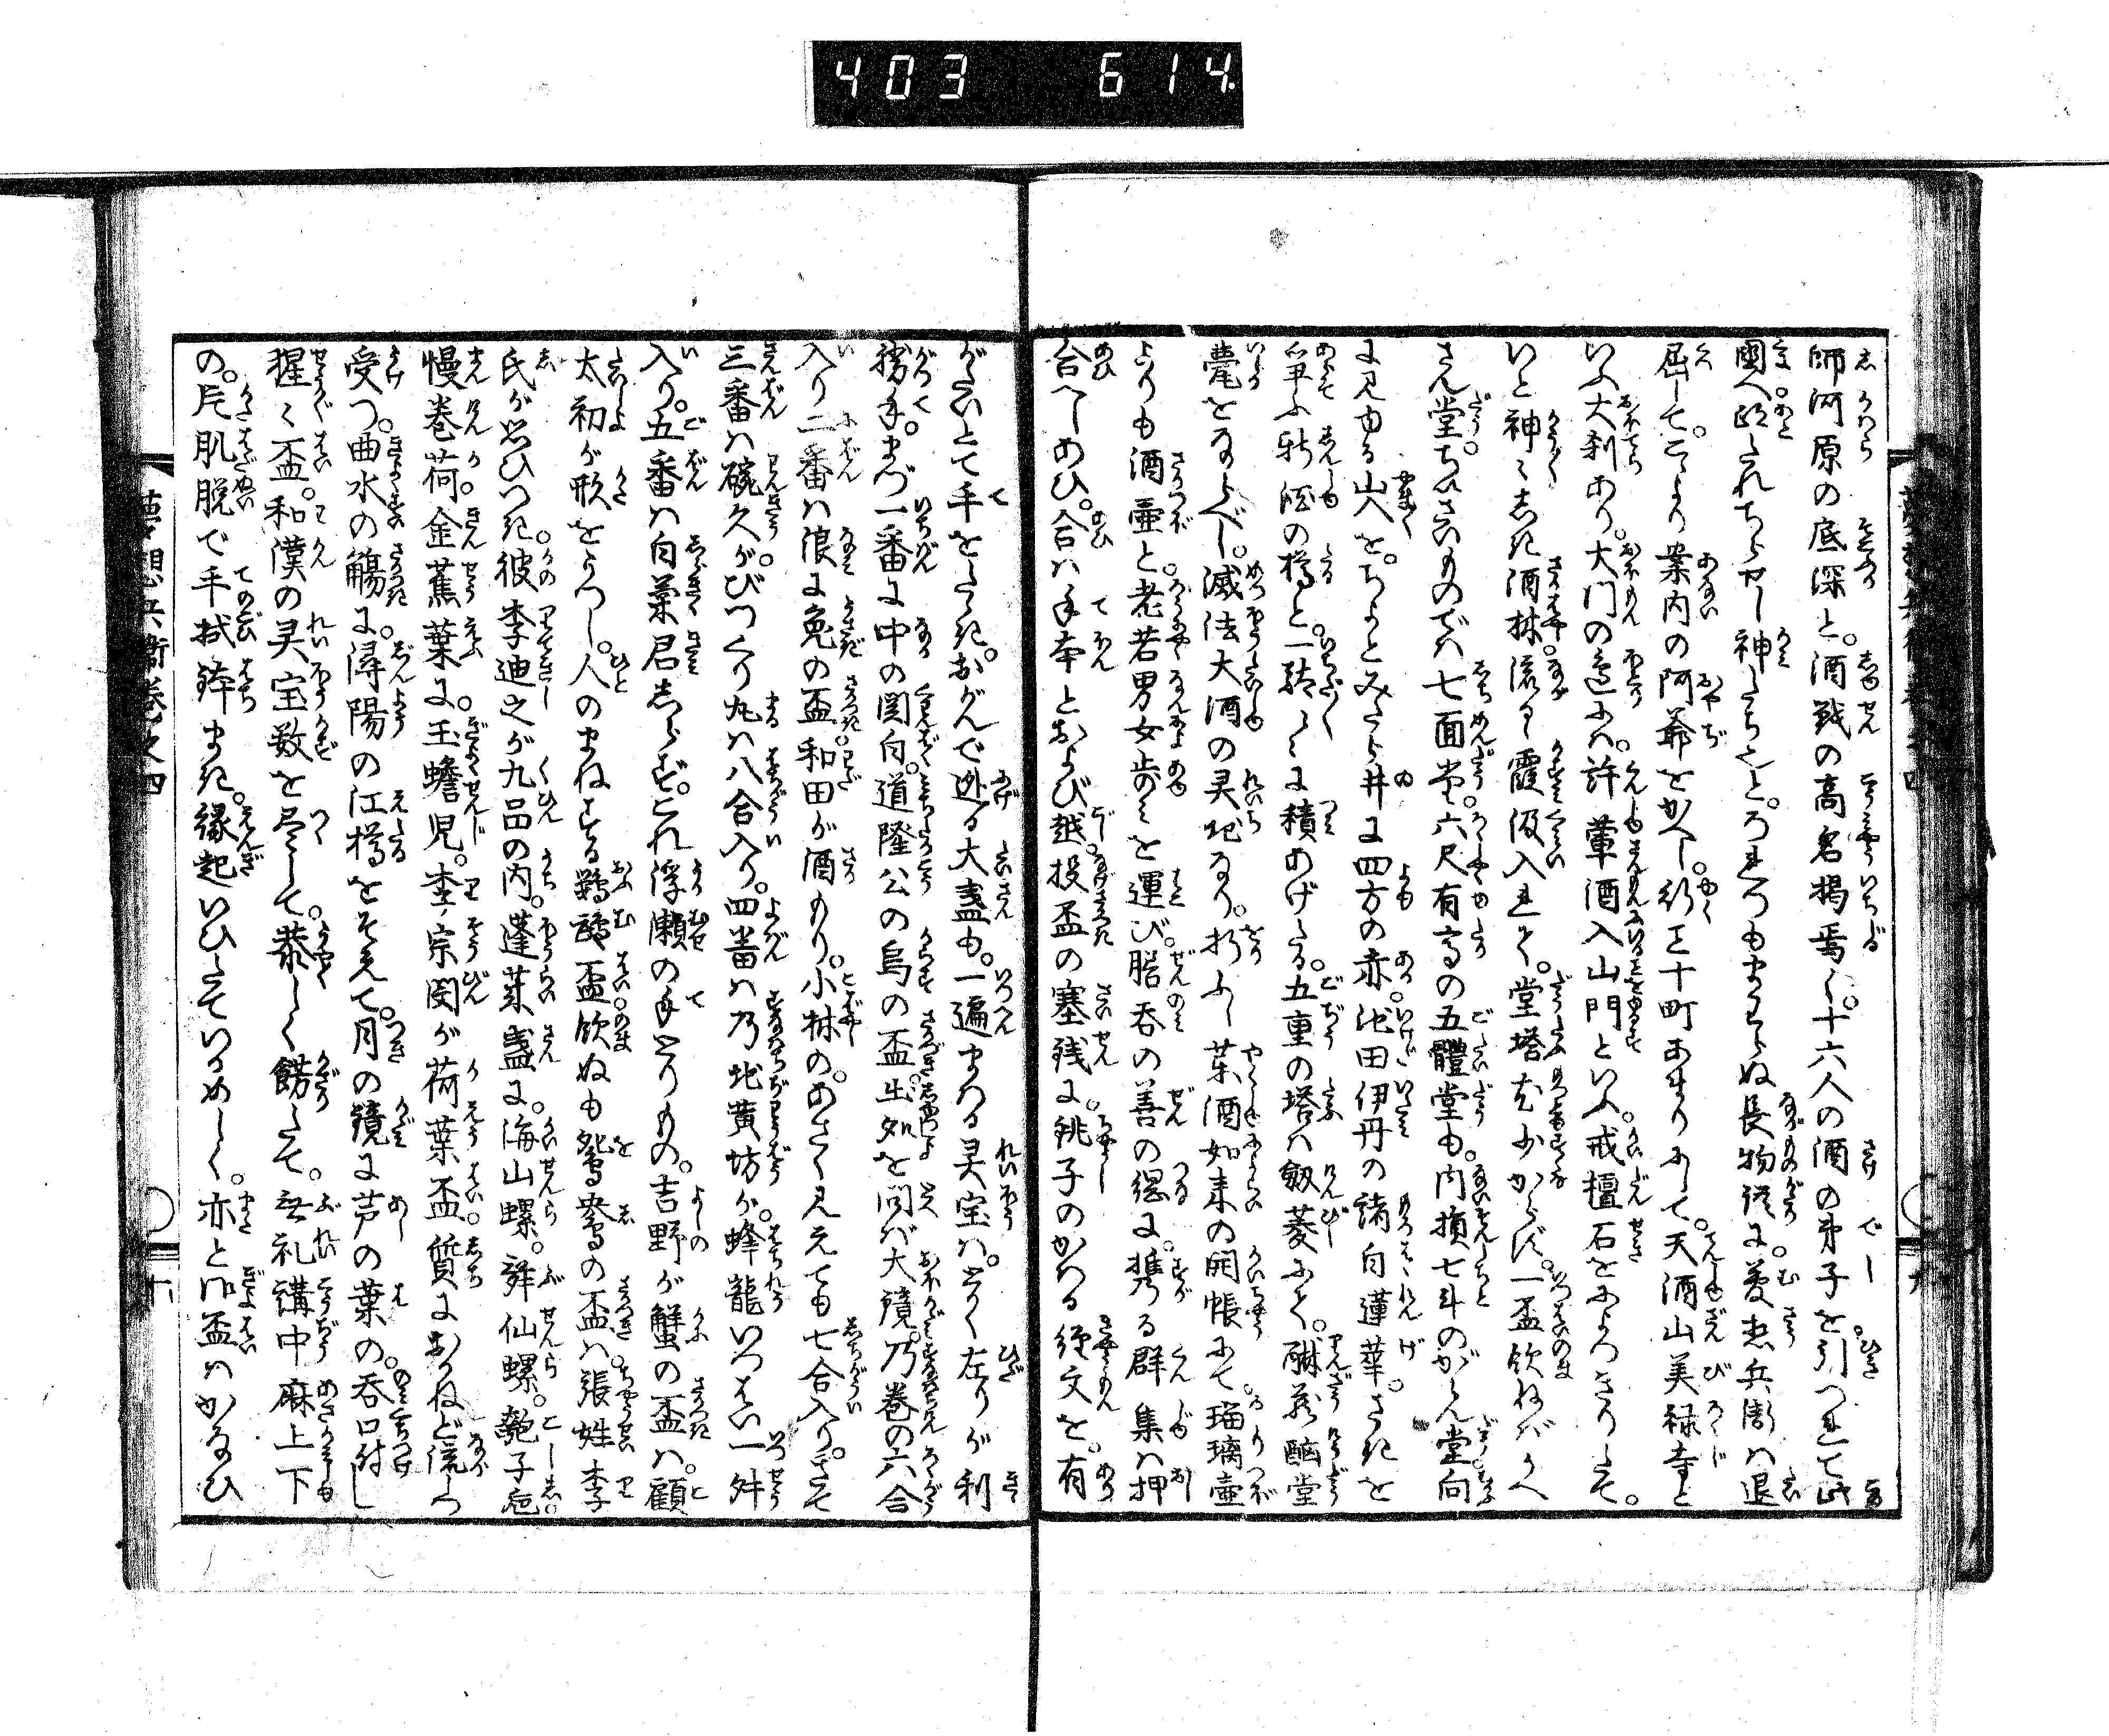 403 614
師河原の底深と。酒戦の高名掲焉く。十六人の酒の弟子を引つれて此
國へ跡たれちらかし神たちだと。ろれつもまわらぬ長物語に。夢想兵衛は退
屈して。こゝより案内の阿爺をかへし。行こと十町あまりにして。天酒山美禄寺と
いふ大刹あり。大門の邊には。許葷酒入山門といふ。戒檀石をによつきりたて。
いと神々しき酒林。流るゝ霞汲入れて。堂塔尤少からず。一盃飲ねばうへ
さん堂。ちひさいものでは七面堂。六尺有高の五體堂も。内損七斗のがらん堂向
に見ゆる山々を。ちよとみたら井に四方の赤。池田伊丹の諸白蓮華。さきを
争ふ新酒の樽と。一駄々々に積あげたる。五重の塔は劔菱にて。醂蔵𨡕堂
甍をならべし。滅法大酒の灵地なり。折ふし薬酒如来の開帳にて。瑠璃壷
よりも酒壷と。老若男女歩みを運び。膳呑の善の綱に。携る群集は押
合へしあひ。合は手本とおよび越投盃の塞残に。銚子のかはる経文を。有
がたいとて手をたゝき。おがんで逃る大盞も。一遍まはる灵宝は。とかく左りが利
勝手。まづ一番に中の関白。道隆公の烏の盃。出処を問ば大鏡。乃巻の六合
入り二番は浪に兔の盃和田が酒もり。小林の。あさく見えても七合入り。さて
三番は碗久がびつくり丸は八合入り。四番は乃地黄坊が。蜂龍いつぱい一舛
入り。五番は白藁君しらず。これ浮瀬の手とりもの。吉野が蟹の盃は。顧
太初が形をうつし。人のまねする鸚鵡盃飲ぬも鴛鴦の盃は。張姓李
氏が思ひつき。彼李迪之が九品の内。蓬莱盞に。海山螺。舞仙螺。匏子巵
慢巻荷。金蕉葉に。玉蟾児。李宗閔が荷葉盃質におかねど流れつ
受つ。曲水の觴に。潯陽の江樽をそえて。月の鏡に芦の葉の。呑口付し
猩々盃。和漢の灵宝数を尽して。恭しく餝たて。無礼講中麻上下
の。片肌脱で手拭鉢まき。縁起いひたていかめしく。亦と御盃はかなひ
夢想兵衛巻之四
十